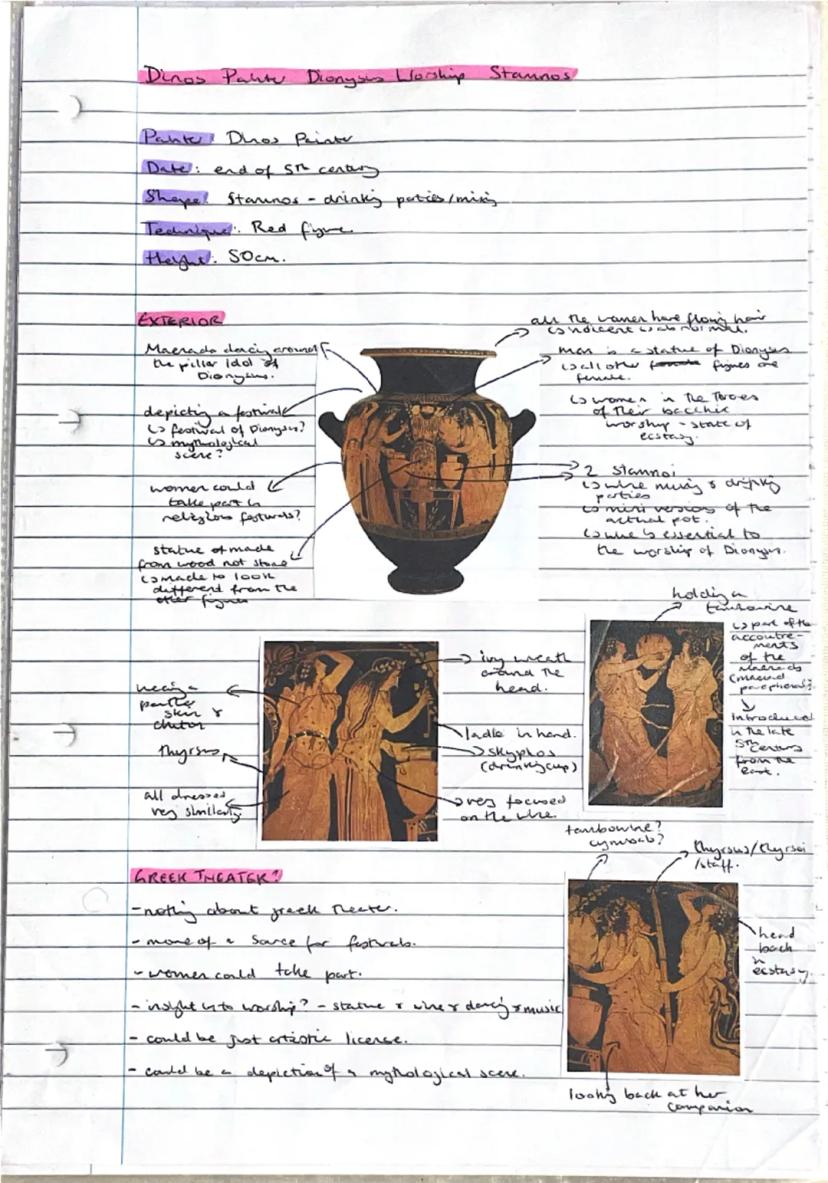 Dinos Painter Dionysus Worship Stamnos
Painter: Dinos Painter
Date: end of 5th century
Shape: Stamnos - drinking parties/mixing
Technique: Red figure.
Height: 50cm.
EXTERIOR
Maenads dancing around
the pillar idol of
Dionysus.
depicting a festival
↳ festival of Dionysus?
↳ mythological
scene?
women could
take part in
religious festivals?
statue of made
from wood not stone
↳ made to look
different from the
other figures
all the women have flowing hair
↳ indicent ↳ abnormal.
man is a statue of Dionysus
↳ all other figures are
female.
↳ women in the throes
of their bacchic
worship - state of
ecstasy.
2 stamnoi
↳ wine mixing & drinking
parties
↳ mini versions of the
actual pot.
↳ wine is essential to
the worship of Dionysus.
wearing a
panther
skin &
chiton
thyrsus
all dressed
very similarly.
ivy wreath
around the
head.
ladle in hand.
skyphos
(drinking cup)
very focused
on the wine.
holding a
tambourine
↳ part of the
accoutre-
ments
of the
maenads
(maenad
↓
introduced
in the late
5th century
from the
east.
GREEK THEATER?
- nothing about greek theater.
- more of a source for festivals.
- women could take part.
- insight into worship? - statue & wine & dancing & music
- could be just artistic license.
- could be a depiction of a mythological scene.
tambourine?
cymbals?
thyrsus/thyrsoi
/staff.
head
back
in
ecstasy.
looking back at her
companion